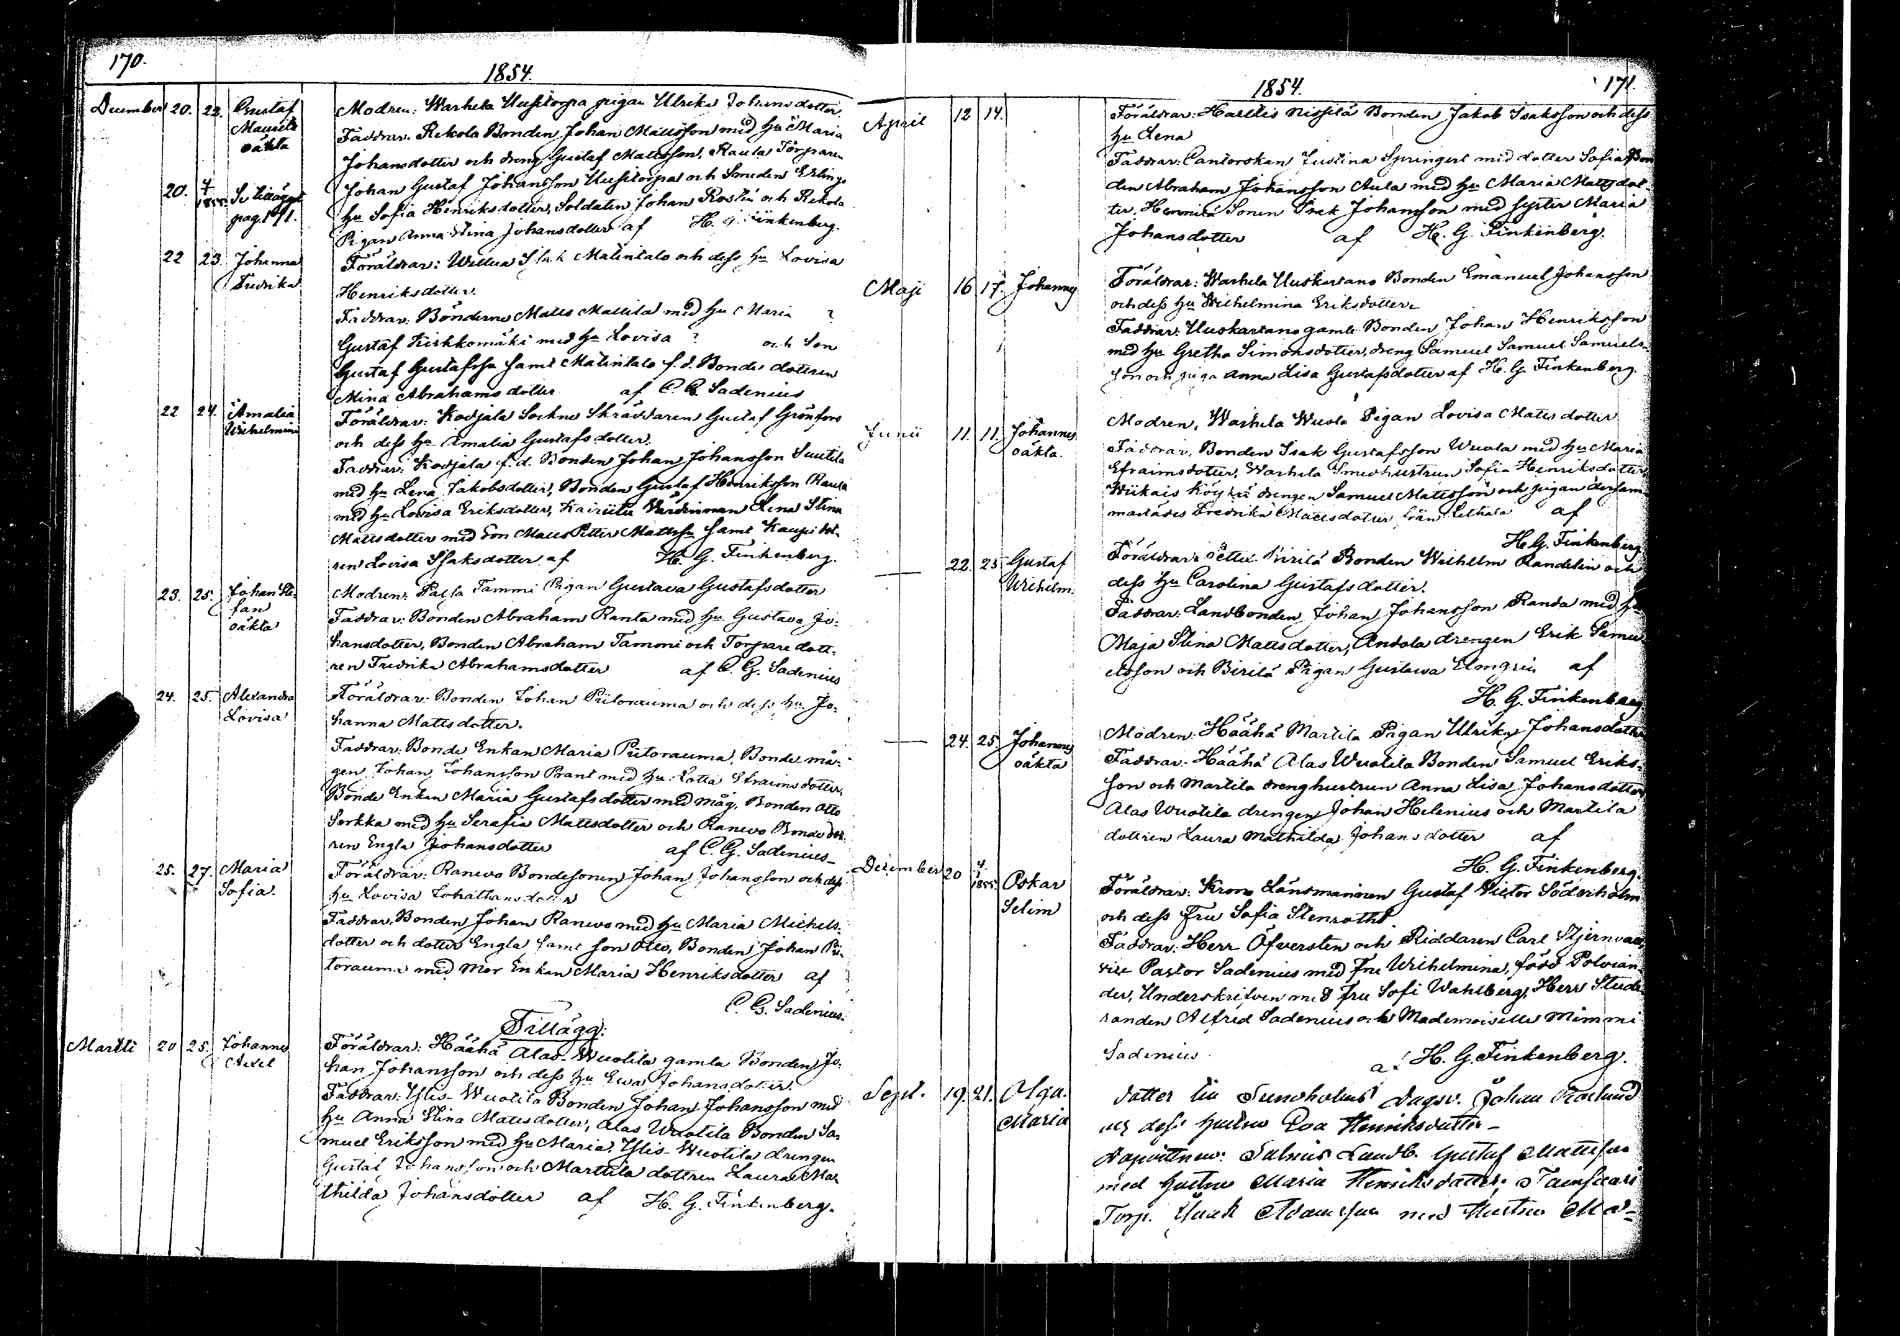 170.
1854.
December 20. 22. Gustaf Mauritz oäkta
Modren: Warhela Uusitorpa pigan Ulrika Johansdotter.
Faddrar: Rekola Bonden Johan Mattsson med hu Maria
Johansdotter och dreng Gustaf Mattsson, Raula Torparen
Johan Gustaf Johansson Uusitorpa och Smeden
hu Sofia Henriksdotter, Soldaten Johan Rostén och Rekola
Pigan Anna Stina Johansdotter af H. G. Finkenberg.
20. 4/1 1855. Se tillägget pag. 171.
22 23. Johanna Fredrika
Föräldrar: Isak Matintalo och dess hu Lovisa
Henriksdotter.
Faddrar: Bönderne Matts Mattila med hu Maria ?
Gustaf Kirkkomäki med hu Lovisa ? och Son
Gustaf Gustafsson samt Matintalo f.d. Bonde dottren
Mina Abrahamsdotter af C. G. Sadenius
22 24. Amalia Wilhelmina
Föräldrar: Kodjala Sockne Skräddaren Gustaf Grönfors
och dess hu Amalia Gustafsdotter.
Faddrar: Kodjala f.d. Bonden Johan Johansson Suutila
med hu Lena Jakobsdotter, Bonden Gustaf Henriksson Raula
med hu Lovisa Eriksdotter, Lena Stina
Mattsdotter med Son Matts Petter Mattsson samt Kauppi dot-
ren Lovisa Isaksdotter af H. G. Finkenberg.
23. 25. Johan Ste- fan oäkta
Modren: Tammi Pigan Gustava Gustafsdotter
Faddrar: Bonden Abraham Ranta med hu Gustava Jo-
hansdotter, Bonden Abraham Tammi och Torpare dott-
ren Fredrika Abrahamsdotter af C. G. Sadenius
24. 25. Alexandra Lovisa
Föräldrar: Bonden Johan Piitorauma och dess hu Jo-
hanna Mattsdotter.
Faddrar: Bonde Enkan Maria Piitorauma, Bonde må-
gen Johan Johansson med hu Lotta Efraimsdotter,
Bonde Enkan Maria Gustafsdotter med måg, Bonden Otto
Sorkka med hu Serafia Mattsdotter och Ranevo Bonde dott-
ren Engla Johansdotter af C. G. Sadenius
25. 27. Maria Sofia.
Föräldrar: Ranevo Bondesonen Johan Johansson och dess
hu Lovisa
Faddrar: Bonden Johan Ranevo med hu Maria Michels-
dotter och dotter Engla samt son Otto, Bonden Johan Pii-
torauma med Mor Enkan Maria Henriksdotter af
C. G. Sadenius.
Tillägg:
Martii 20 25. Johannes Axel
Föräldrar: Häähä Alas-Wuotila gamla Bonden Jo-
han Johansson och dess hu Ewa Johansdotter.
Faddrar: Ylis-Wuotila Bonden Johan Johansson med
hu Anna Stina Mattsdotter, Alas Wuotila Bonden Sa-
muel Eriksson med hu Maria, Ylis-Wuotila drengen
Gustaf Johansson och Marttila dottren Laura Ma-
thilda Johansdotter af H. G. Finkenberg.
1854.
171
April 12 14.
Föräldrar: Nissilä Bonden Jakob Isaksson och dess
hu Lena
Faddrar: Cantorskan Justina Springert med dotter Sofia, Bon
den Abraham Johansson Aula med hu Maria Mattsdot-
ter, Sonen Isak Johansson med syster Maria
Johansdotter af H. G. Finkenberg.
Maji 16 17. Johannes
Föräldrar: Warhela Uuskartano Bonden Emanuel Johansson
och dess hu Wilhelmina Eriksdotter
Faddrar: Uuskartano gamle Bonden Johan Henriksson
med hu Gretha Simonsdotter, dreng Samuel Samuel Samuels-
son och piga Anna Lisa Gustafsdotter af H. G. Finkenberg.
Junii 11. 11. Johannes oäkta.
Modren, Warhela Wuola Pigan Lovisa Mattsdotter
Faddrar, Bonden Isak Gustafsson Wuola med hu Maria
Efraimsdotter, Warhela Smedhustrun Sofia Henriksdotter
drengen Samuel Mattsson och pigan dersam-
mastädes Fredrika Mattsdotter från af
H. G. Finkenberg
— 22. 25 Gustaf Wilhelm.
Föräldrar: Pirilä Bonden Wilhelm Randelin och
dess hu Carolina Gustafsdotter.
Faddrar: Landbonden Johan Johansson Randa med hu
Maja Stina Mattsdotter, Andola drengen Erik Samu-
elsson och Pirilä Pigan Gustava Elmgren af
H. G. Finkenberg
— 24. 25 Johannes oäkta
Modren: Häähä Martila Pigan Ulrika Johansdotter
Faddrar: Häähä Alas Wuotila Bonden Samuel Eriks-
son och Martila drenghustrun Anna Lisa Johansdotter,
Alas Wuotila drengen Johan Helenius och Martila
dottren Laura Mathilda Johansdotter af
H. G. Finkenberg.
December 20 4/1 1855. Oskar Selim
Föräldrar: Krono Länsmannen Gustaf Victor Söderholm
och dess Fru Sofia Stenroth.
Faddrar: Herr Öfversten och Riddaren Carl Stjernvall,
vice Pastor Sadenius med Fru Wilhelmina, född Polvian-
der, Underskrifven med Fru Sofi Wahlberg, Herr Stude-
randen Alfred Sadenius och Mademoiselle Mimmi
Sadenius af H. G. Finkenberg.
Sept. 19. 21. Olga Maria
dotter till dagsv. Johan
och dess hustru Eva Henriksdotter –
Dopvittnen: Landb. Gustaf Mattsson
med hustru Maria Henriksdotter,
Torp. Isack Adamsson med Hustru Ma-